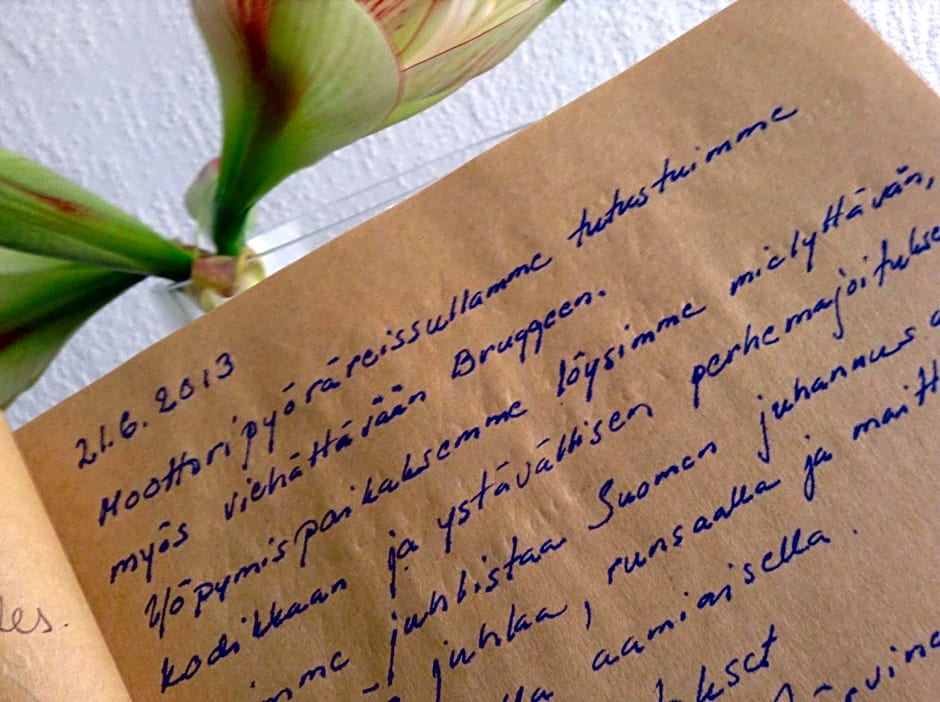 21.6.2013
Moottoripyöräreissullamme tutustuimme
myös viehättävään Bruggeen.
Yöpymispaikaksemme löysimme miellyttävän,
kodikkaan ja ystävällisen perhemajoitukse
mme juhlistaa Suomen juhannus a
juhlaa, runsaalla ja maitt
lla aamiaisella.
kset
Järvine
les.